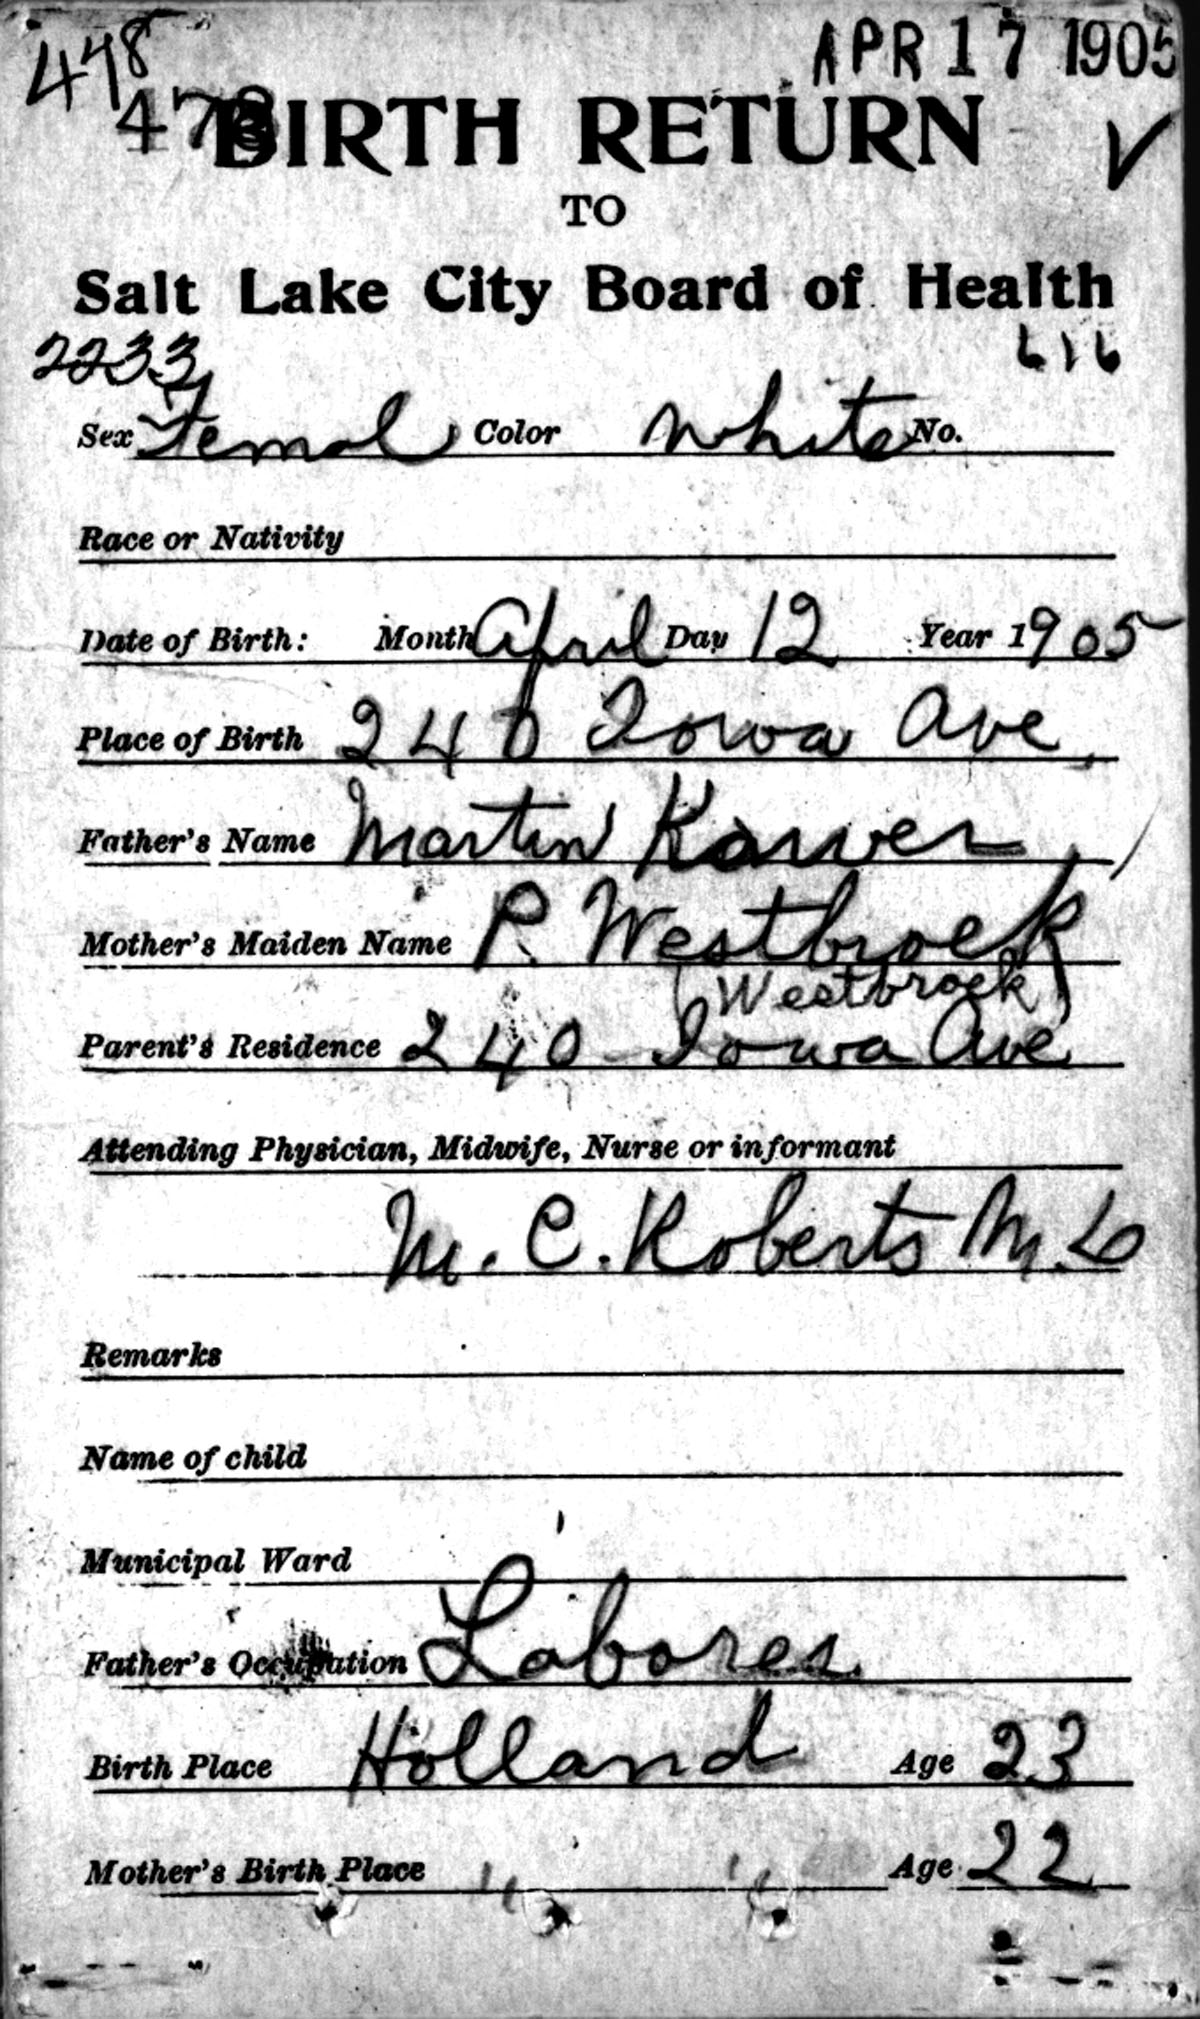 448 APR 17 1905
478 BIRTH RETURN ✓
TO
Salt Lake City Board of Health
2233 616
Sex Femal Color White No.
Race or Nativity
Date of Birth: Month April Day 12 Year 1905
Place of Birth 240 Iowa Ave
Father's Name Martin Kawer
Mother's Maiden Name P. Westbroek
(Westbroek)
Parent's Residence 240 Iowa Ave
Attending Physician, Midwife, Nurse or informant
M. C. Roberts M.D
Remarks
Name of child
Municipal Ward
Father's Occupation Laborer
Birth Place Holland Age 23
Mother's Birth Place " " Age 22